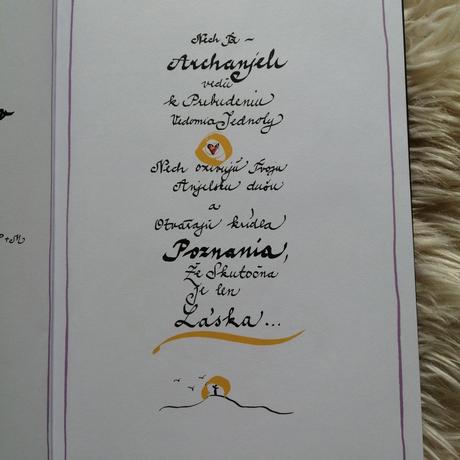 Nech Ťa –
Archanjeli
vedú
k Prebudeniu
Vedomia Jednoty
Nech oživujú Tvoju
Anjelskú dušu
a
Otvárajú krídla
Poznania,
Že Skutočná
Je len
Láska...